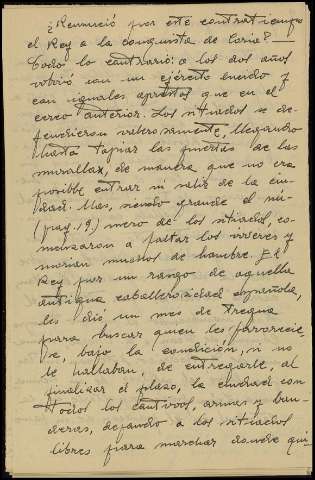 ¿Renunció por este contratiempo
el Rey a la conquista de Coria? —
Todo lo contrario: a los dos años
volvió con un ejército lucido y
con iguales aprestos que en el
cerco anterior. Los sitiados se de-
fendieron valerosamente, llegando
hasta tapiar las puertas de las
murallas, de manera que no era
posible entrar ni salir de la ciu-
dad. Mas, siendo grande el nú-
(pag. 19.) mero de los sitiados, co-
menzaron a faltar los víveres y
morían muchos de hambre. El
Rey por un rango de aquella
antigua caballerosidad española,
les dió un mes de tregua
para buscar quien les favorecie-
se, bajo la condición, si no
le hallaban, de entregarle, al
finalizar el plazo, la ciudad con
todos los cautivos, armas y ban-
deras, dejando a los sitiados
libres para marchar donde qui-